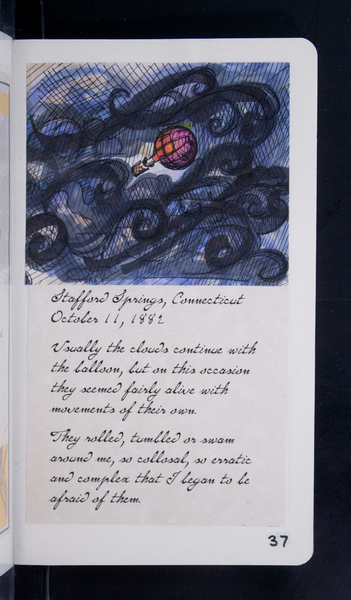 Stafford Springs, Connecticut
October 11, 1882
Usually the clouds continue with
the balloon, but on this occasion
they seemed fairly alive with
movements of their own.
They rolled, tumbled or swam
around me, so collosal, so erratic
and complex that I began to be
afraid of them.
37